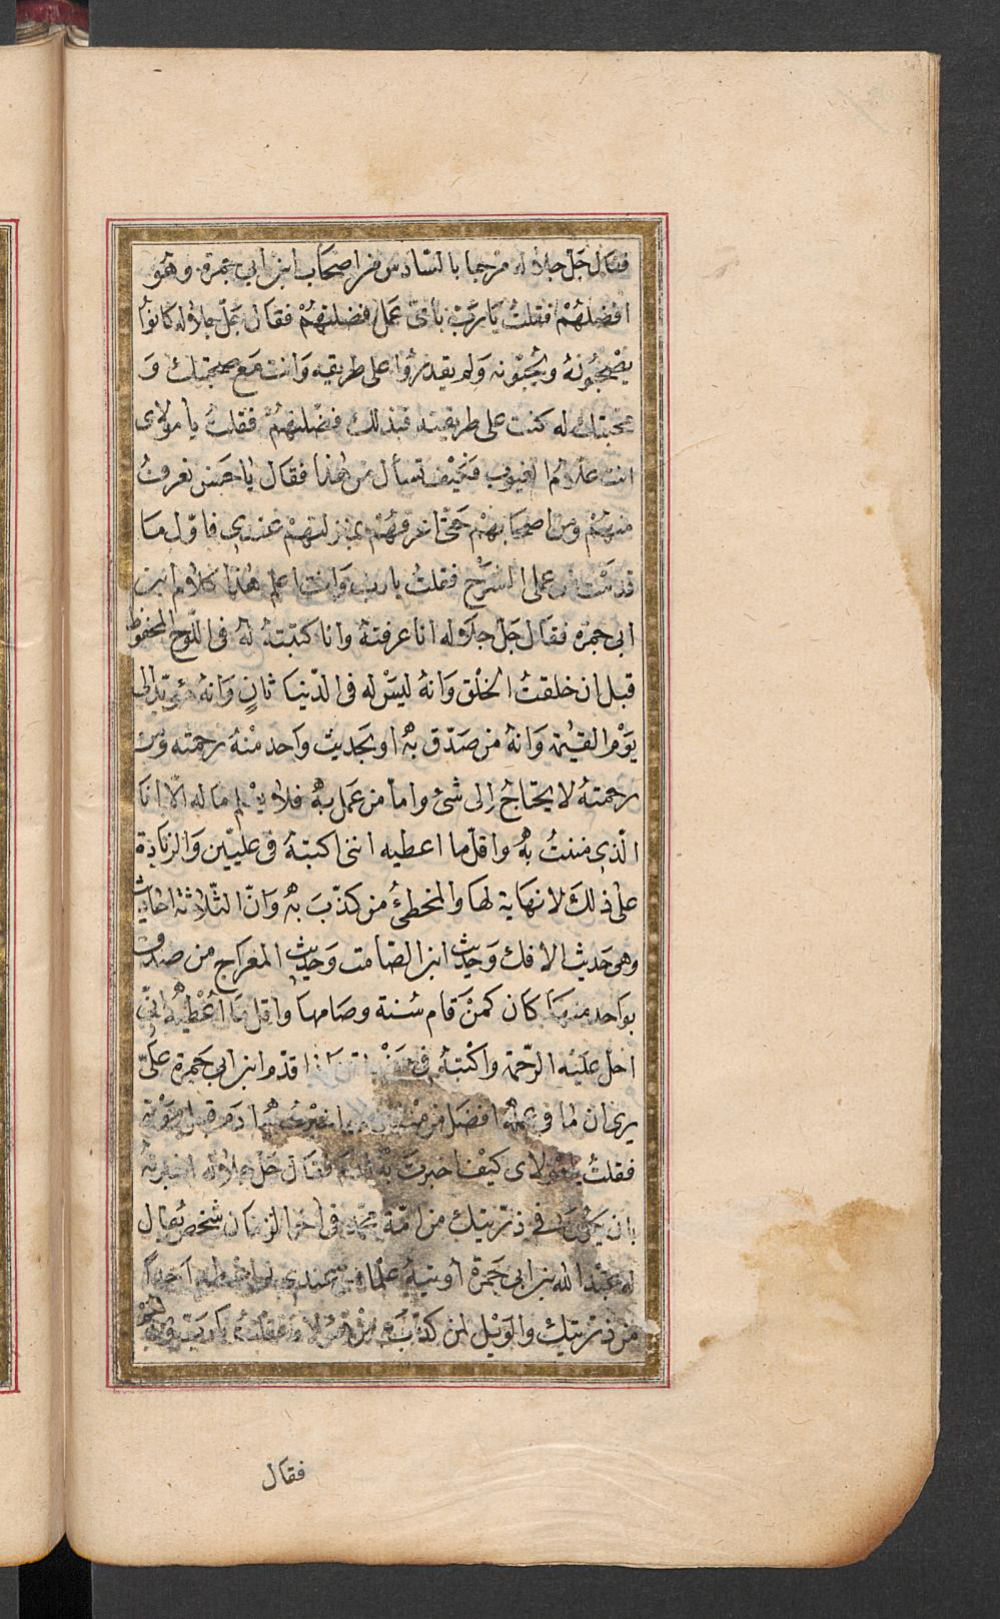 فقال جل جلاله مرحبا بالسادس من اصحاب ابن ابي جمرة وهو
افضلهم فقلت يا رب باى عمل فضلتهم فقال جل جلاله كانوا
يصحبونه ويحبونه ولم يقدروا على طريقه وانت مع صحبتك و
محبتك له كنت على طريقته فبذلك فضلتهم فقلت يا مولاى
انت علام الغيوب فكيف تسأل من هذا فقال يا حسن نعرف
منهم ومن اصحابهم حتى نعرفهم بمنزلتهم عندى فاول ما
قدمت من عملى الشرح فقلت يا رب وانت اعلم هذا كلام ابن
ابى جمرة فقال جل جلاله انا عرفته وانا كتبته له فى اللوح المحفوظ
قبل ان خلقت الخلق وانه ليس له فى الدنيا ثان وانه مؤيد الى
يوم القيمة وانه من صدق به او بحديث واحد منه رحمته ومن
رحمته لا يحتاج الى شئ واما من عمل به فلا يعلم ما له الا انا
الذى مننت به واقل ما اعطيه اننى اكتبه فى عليين والزيادة
على ذلك لا نهاية لها والمخطئ من كذب به وان الثلاثة احاديث
وهى حديث الافك وحديث ابن الصامت وحديث المعراج من صدق
بواحد منها كان كمن قام سنة وصامها واقل ما اعطيه انى
احل عليه الرحمة واكتبه فى قدم ابن ابى جمرة على
يرى ان ما وعمله افضل من ادم قبل
فقلت يا مولاى كيف اخبرت به فقال جل جلاله اخبرته
بان يكون فى ذريتك من امة محمد فى اخر الزمان شخص يقال
له عبد الله بن ابى جمرة اوتيه علما من عندى لم اعطه احدا
من ذريتك والويل لمن كذب فقلت يا رب
فقال